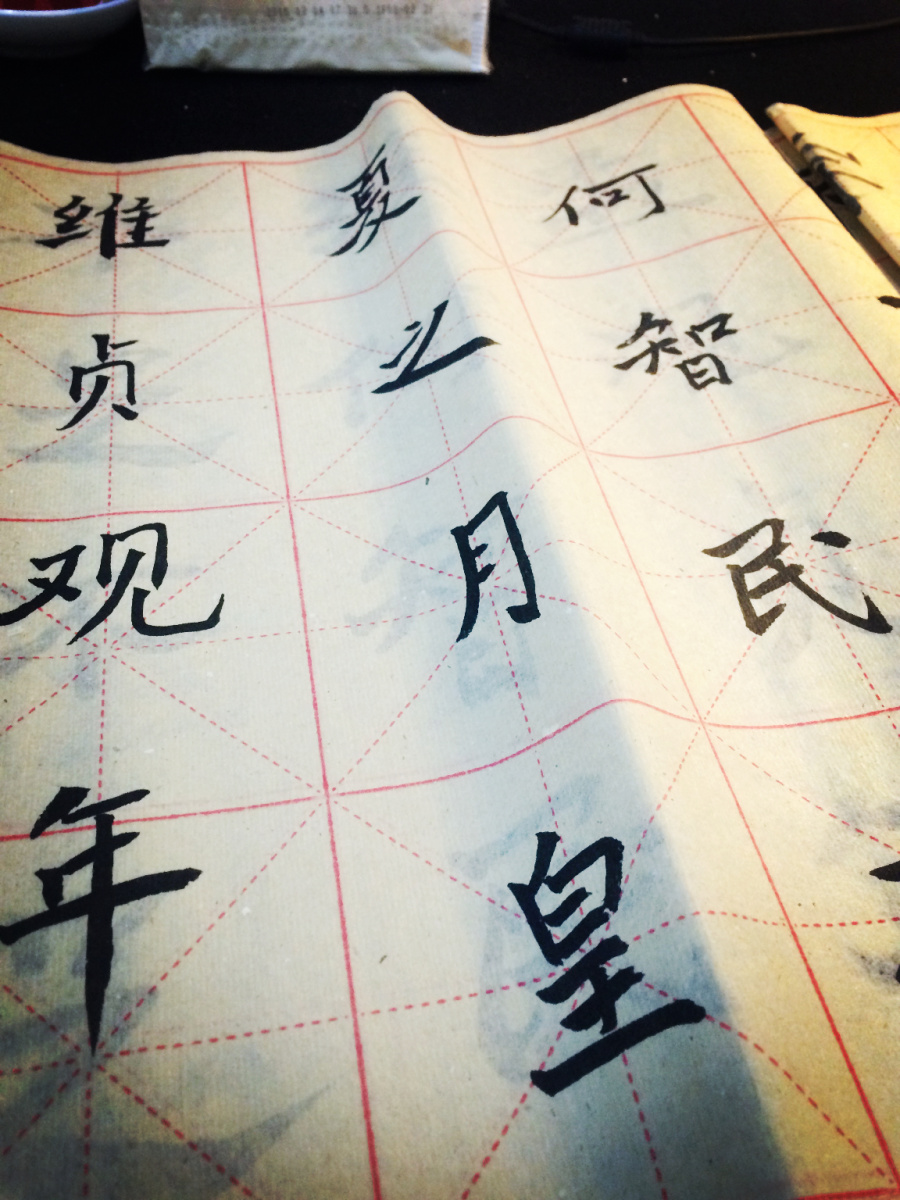 维贞观年
夏之月皇
何智民